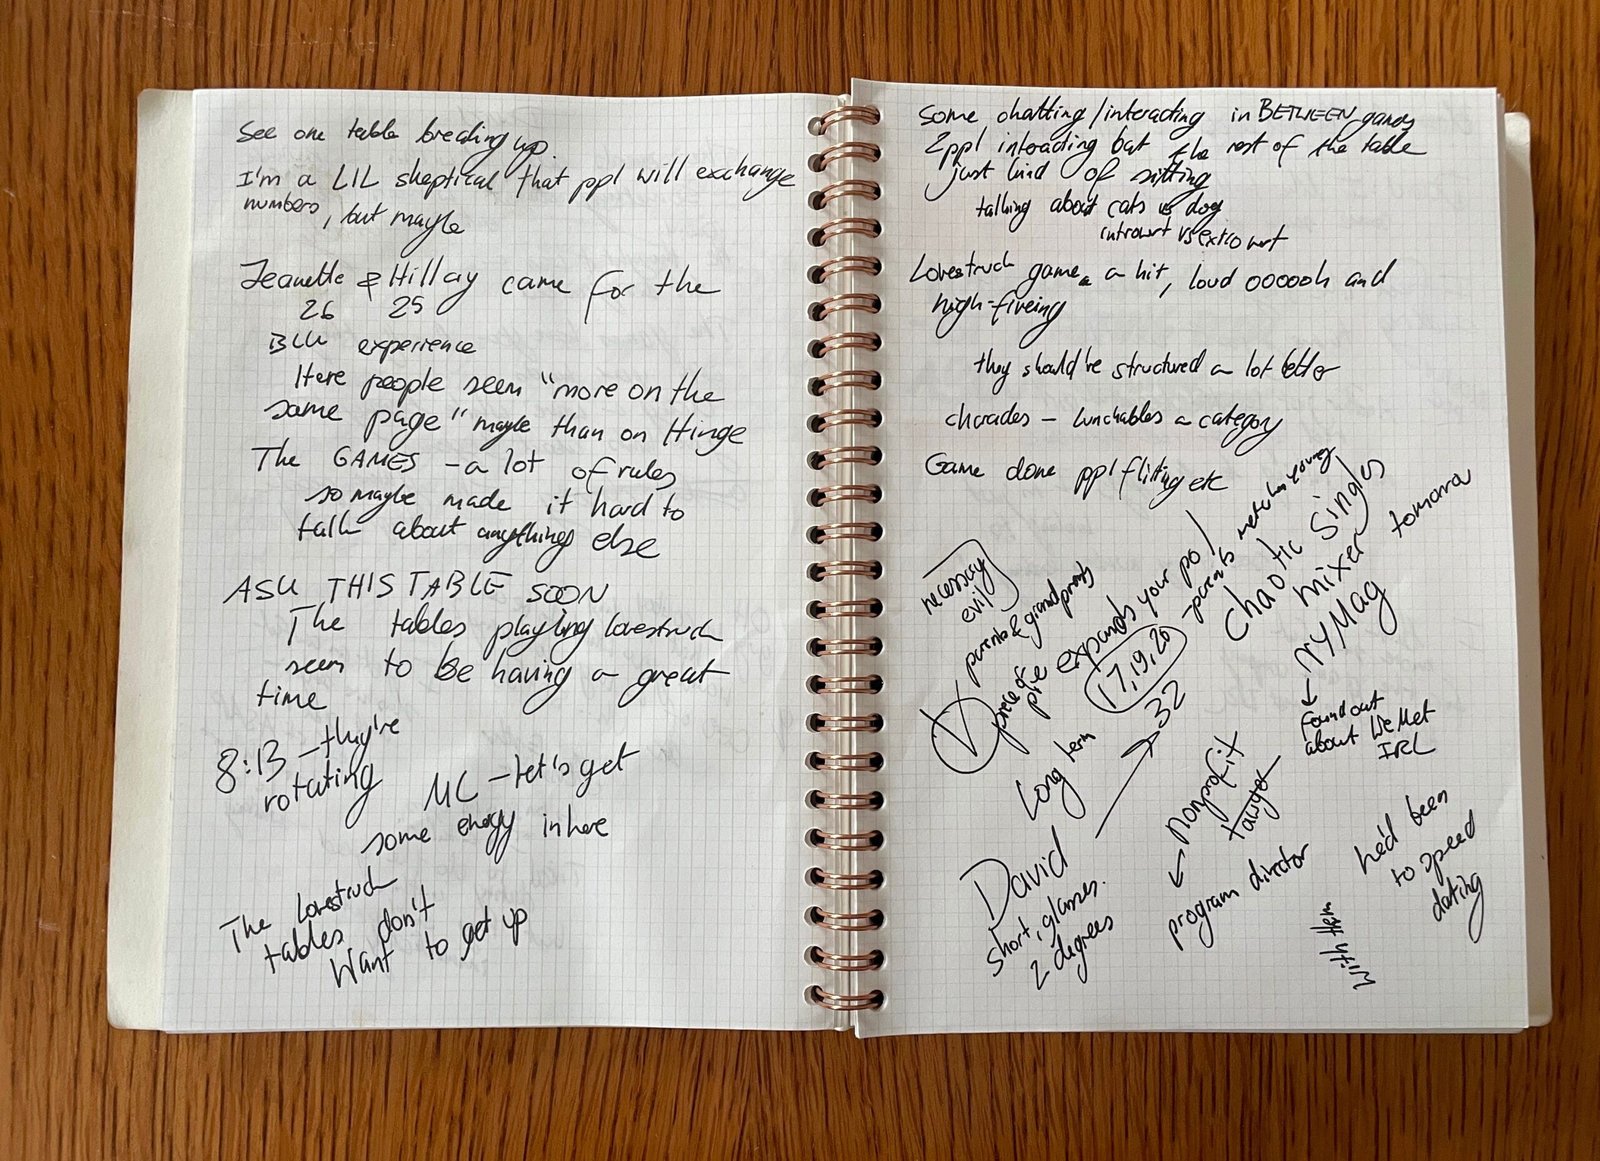 See one table breaking up
I'm a LIL skeptical that ppl will exchange
numbers, but maybe
Jeanette & Hillary came for the
26 25
BLU experience
Here people seem "more on the
same page" maybe than on Hinge
The GAMES - a lot of rules
so maybe made it hard to
talk about anything else
ASK THIS TABLE SOON
The tables playing lovestruck
seem to be having a great
time
8:13 - they're
rotating
MC - let's get
some energy in here
The lovestruck
tables don't
want to get up
Some chatting/interacting in BETWEEN games
2ppl interacting but the rest of the table
just kind of sitting
talking about cats vs dog
introvert vs extrovert
Lovestruck game a hit, loud ooooh and
high-fiveing
they should be structured a lot better
charades - lunchables a category
Game done ppl flirting etc
necessary
evil
parents & grandparents
piece of
pie expands your pol
- parents met when young
17, 19, 20
32
long term
Chaotic Singles
mixer tomorrow
NYMag
Found out
about We Met
IRL
David
short, glasses.
2 degrees
nonprofit
lawyer
program director
he'd been
to speed
dating
with them